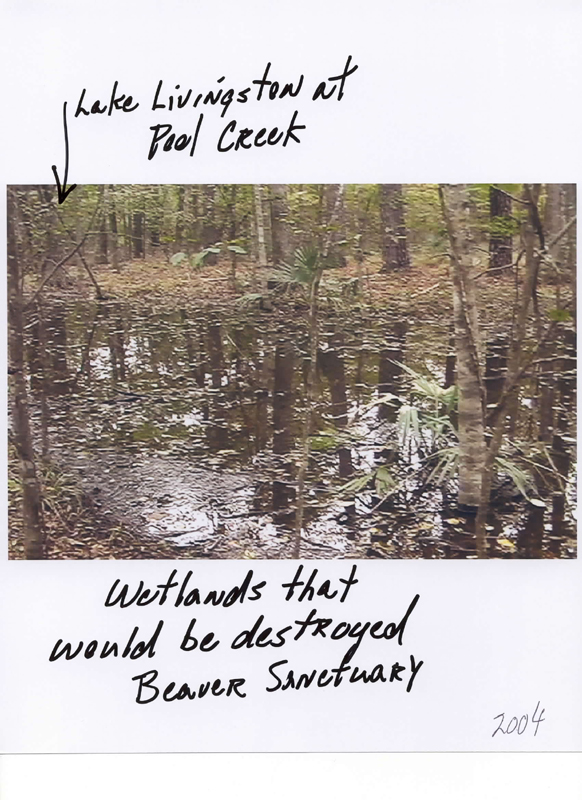 Lake Livingston at
Pool Creek
Wetlands that
would be destroyed
Beaver Sanctuary
2004